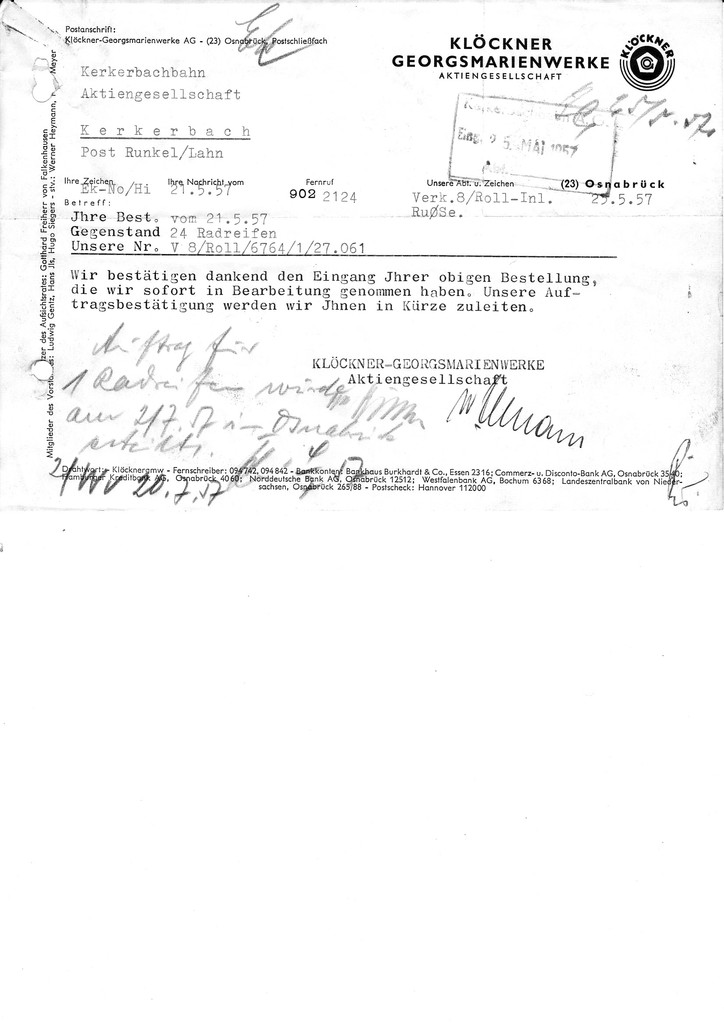 Postanschrift:
Klöckner-Georgsmarienwerke AG - (23) Osnabrück, Postschließfach
KLÖCKNER
GEORGSMARIENWERKE
AKTIENGESELLSCHAFT
KLÖCKNER
Kerkerbachbahn
Aktiengesellschaft
Kerkerbach
Post Runkel/Lahn
Eing. 25. MAI 1957
Ihre Zeichen Ihre Nachricht vom Fernruf Unsere Abt. u. Zeichen (23) Osnabrück
Ek-No/Hi 21.5.57 902 2124 Verk.8/Roll-Inl. 23.5.57
RuØSe.
Betreff:
Jhre Best. vom 21.5.57
Gegenstand 24 Radreifen
Unsere Nr. V 8/Roll/6764/1/27.061
Wir bestätigen dankend den Eingang Jhrer obigen Bestellung,
die wir sofort in Bearbeitung genommen haben. Unsere Auf-
tragsbestätigung werden wir Jhnen in Kürze zuleiten.
KLÖCKNER-GEORGSMARIENWERKE
Aktiengesellschaft
Auftrag für
1 Radreifen wurde
am 2/7.57 in Osnabrück
erteilt.
20.7.57
Drahtwort: Klöcknergmw - Fernschreiber: 094742, 094842 - Bankkonten: Bankhaus Burkhardt & Co., Essen 2316; Commerz- u. Disconto-Bank AG, Osnabrück 3540;
Hamburger Kreditbank AG, Osnabrück 4060; Norddeutsche Bank AG, Osnabrück 12512; Westfalenbank AG, Bochum 6368; Landeszentralbank von Nieder-
sachsen, Osnabrück 265/88 - Postscheck: Hannover 112000
zer des Aufsichtsrates: Gotthard Freiherr von Falkenhausen
Mitglieder des Vorstandes: Ludwig Gentz, Hans Jlk, Hugo Siegers - stv.: Werner Heymann, Meyer